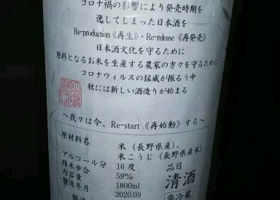 コロナ禍の影響により発売時期を
逸してしまった日本酒を
Re-production《再生》・Re-release《再発売》
日本酒文化を守るために
原料となるお米を生産する農家の方々を守るために
コロナウィルスの猛威が振るう中
秋には新しい酒造りが始まる
〜我々は今、Re-start《再始動》する〜
原材料名 米(長野県産)、
米こうじ(長野県産米)
アルコール分 16度
精米歩合 59%
内容量 1800ml
製造年月 2020.09
品目
清酒
要冷蔵